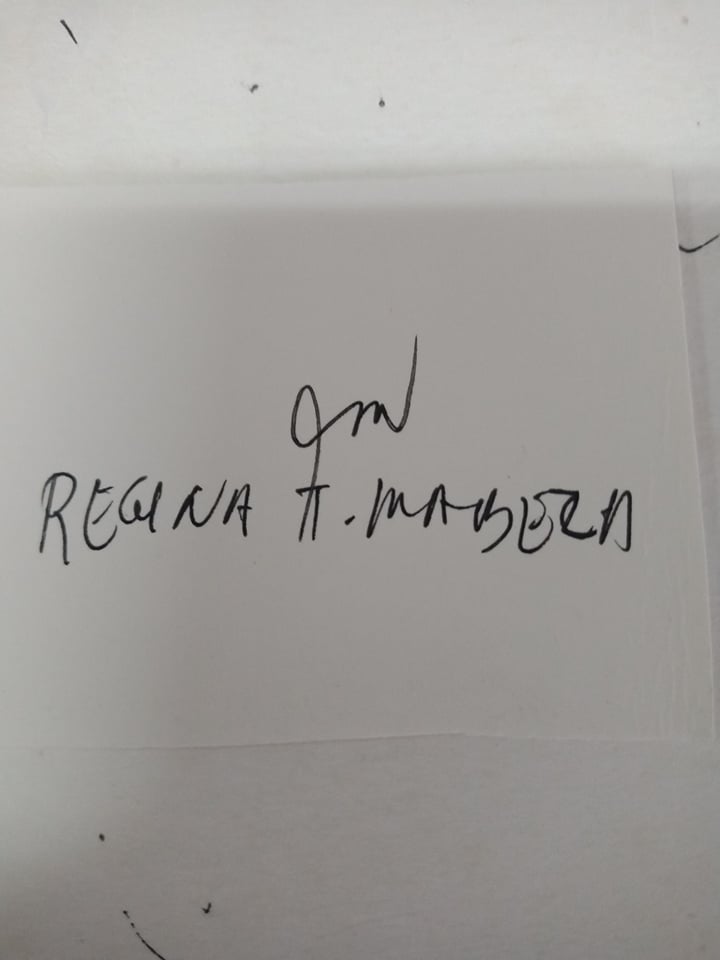 REGINA A. MABEZA